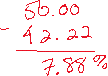 50.00
- 42.22
7.88%